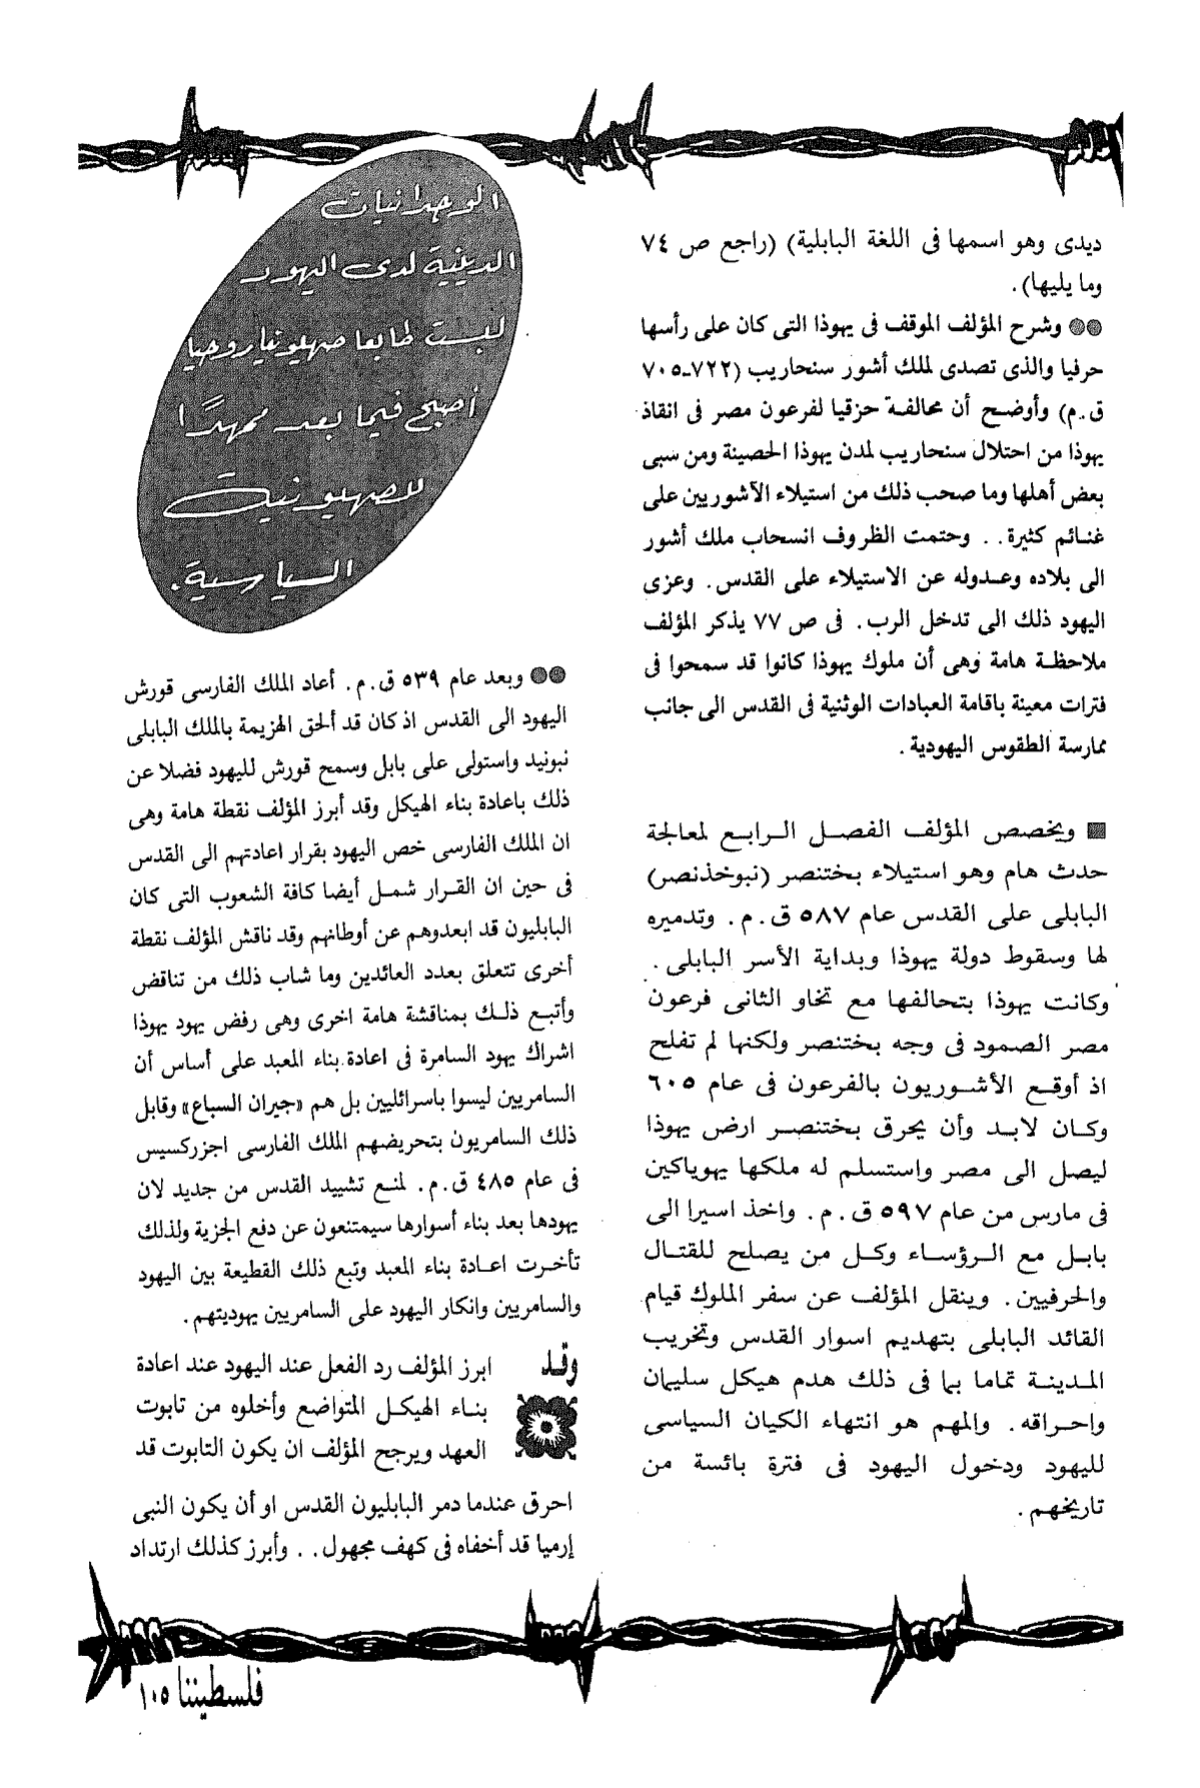 ديدى وهو اسمها فى اللغة البابلية) (راجع ص ٧٤
وما يليها).
وشرح المؤلف الموقف فى يهوذا التى كان على رأسها
حرفيا والذى تصدى لملك أشور سنحاريب (٧٢٢-٧٠٥
ق.م) وأوضح أن محالفة حزقيا لفرعون مصر فى انقاذ
يهوذا من احتلال سنحاريب لمدن يهوذا الحصينة ومن سبى
بعض أهلها وما صحب ذلك من استيلاء الآشوريين على
غنائم كثيرة.. وحتمت الظروف انسحاب ملك أشور
الى بلاده وعدوله عن الاستيلاء على القدس. وعزى
اليهود ذلك الى تدخل الرب. فى ص ٧٧ يذكر المؤلف
ملاحظة هامة وهى أن ملوك يهوذا كانوا قد سمحوا فى
فترات معينة باقامة العبادات الوثنية فى القدس الى جانب
ممارسة الطقوس اليهودية.
ويخصص المؤلف الفصل الرابع لمعالجة
حدث هام وهو استيلاء بختنصر (نبوخذنصر)
البابلى على القدس عام ٥٨٧ ق.م. وتدميره
لها وسقوط دولة يهوذا وبداية الأسر البابلى.
وكانت يهوذا بتحالفها مع تخاو الثانى فرعون
مصر الصمود فى وجه بختنصر ولكنها لم تفلح
اذ أوقع الأشوريون بالفرعون فى عام ٦٠٥
وكان لابد وأن يحرق بختنصر ارض يهوذا
ليصل الى مصر واستسلم له ملكها يهوياكين
فى مارس من عام ٥٩٧ ق.م. واخذ اسيرا الى
بابل مع الرؤساء وكل من يصلح للقتال
والحرفيين. وينقل المؤلف عن سفر الملوك قيام
القائد البابلى بتهديم اسوار القدس وتخريب
المدينة تماما بما فى ذلك هدم هيكل سليمان
واحراقه. والمهم هو انتهاء الكيان السياسى
لليهود ودخول اليهود فى فترة بائسة من
تاريخهم.
الوجدانيات
الدينية لدى اليهود
لبست طابعا صهيونيا روحيا
أصبح فيما بعد ممهدًا
للصهيونية
السياسية.
وبعد عام ٥٣٩ ق.م. أعاد الملك الفارسى قورش
اليهود الى القدس اذ كان قد ألحق الهزيمة بالملك البابلى
نبونيد واستولى على بابل وسمح قورش لليهود فضلا عن
ذلك باعادة بناء الهيكل وقد أبرز المؤلف نقطة هامة وهى
ان الملك الفارسى خص اليهود بقرار اعادتهم الى القدس
فى حين ان القرار شمل أيضا كافة الشعوب التى كان
البابليون قد ابعدوهم عن أوطانهم وقد ناقش المؤلف نقطة
أخرى تتعلق بعدد العائدين وما شاب ذلك من تناقض
وأتبع ذلك بمناقشة هامة اخرى وهى رفض يهود يهوذا
اشراك يهود السامرة فى اعادة بناء المعبد على أساس أن
السامريين ليسوا باسرائليين بل هم «جيران السباع» وقابل
ذلك السامريون بتحريضهم الملك الفارسى اجزركسيس
فى عام ٤٨٥ ق.م. لمنع تشييد القدس من جديد لان
يهودها بعد بناء أسوارها سيمتنعون عن دفع الجزية ولذلك
تأخرت اعادة بناء المعبد وتبع ذلك القطيعة بين اليهود
والسامريين وانكار اليهود على السامريين يهوديتهم.
وقد ابرز المؤلف رد الفعل عند اليهود عند اعادة
بناء الهيكل المتواضع وأخلوه من تابوت
العهد ويرجح المؤلف ان يكون التابوت قد
احرق عندما دمر البابليون القدس او أن يكون النبى
إرميا قد أخفاه فى كهف مجهول.. وأبرز كذلك ارتداد
فلسطيننا ١٠٥